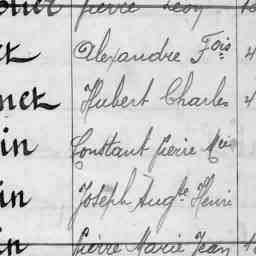 olier Pierre Léon
et Alexandre Fois 4
net Hubert Charles 4
in Constant Pierre Mie
in Joseph Augte Henri
in Pierre Marie Jean